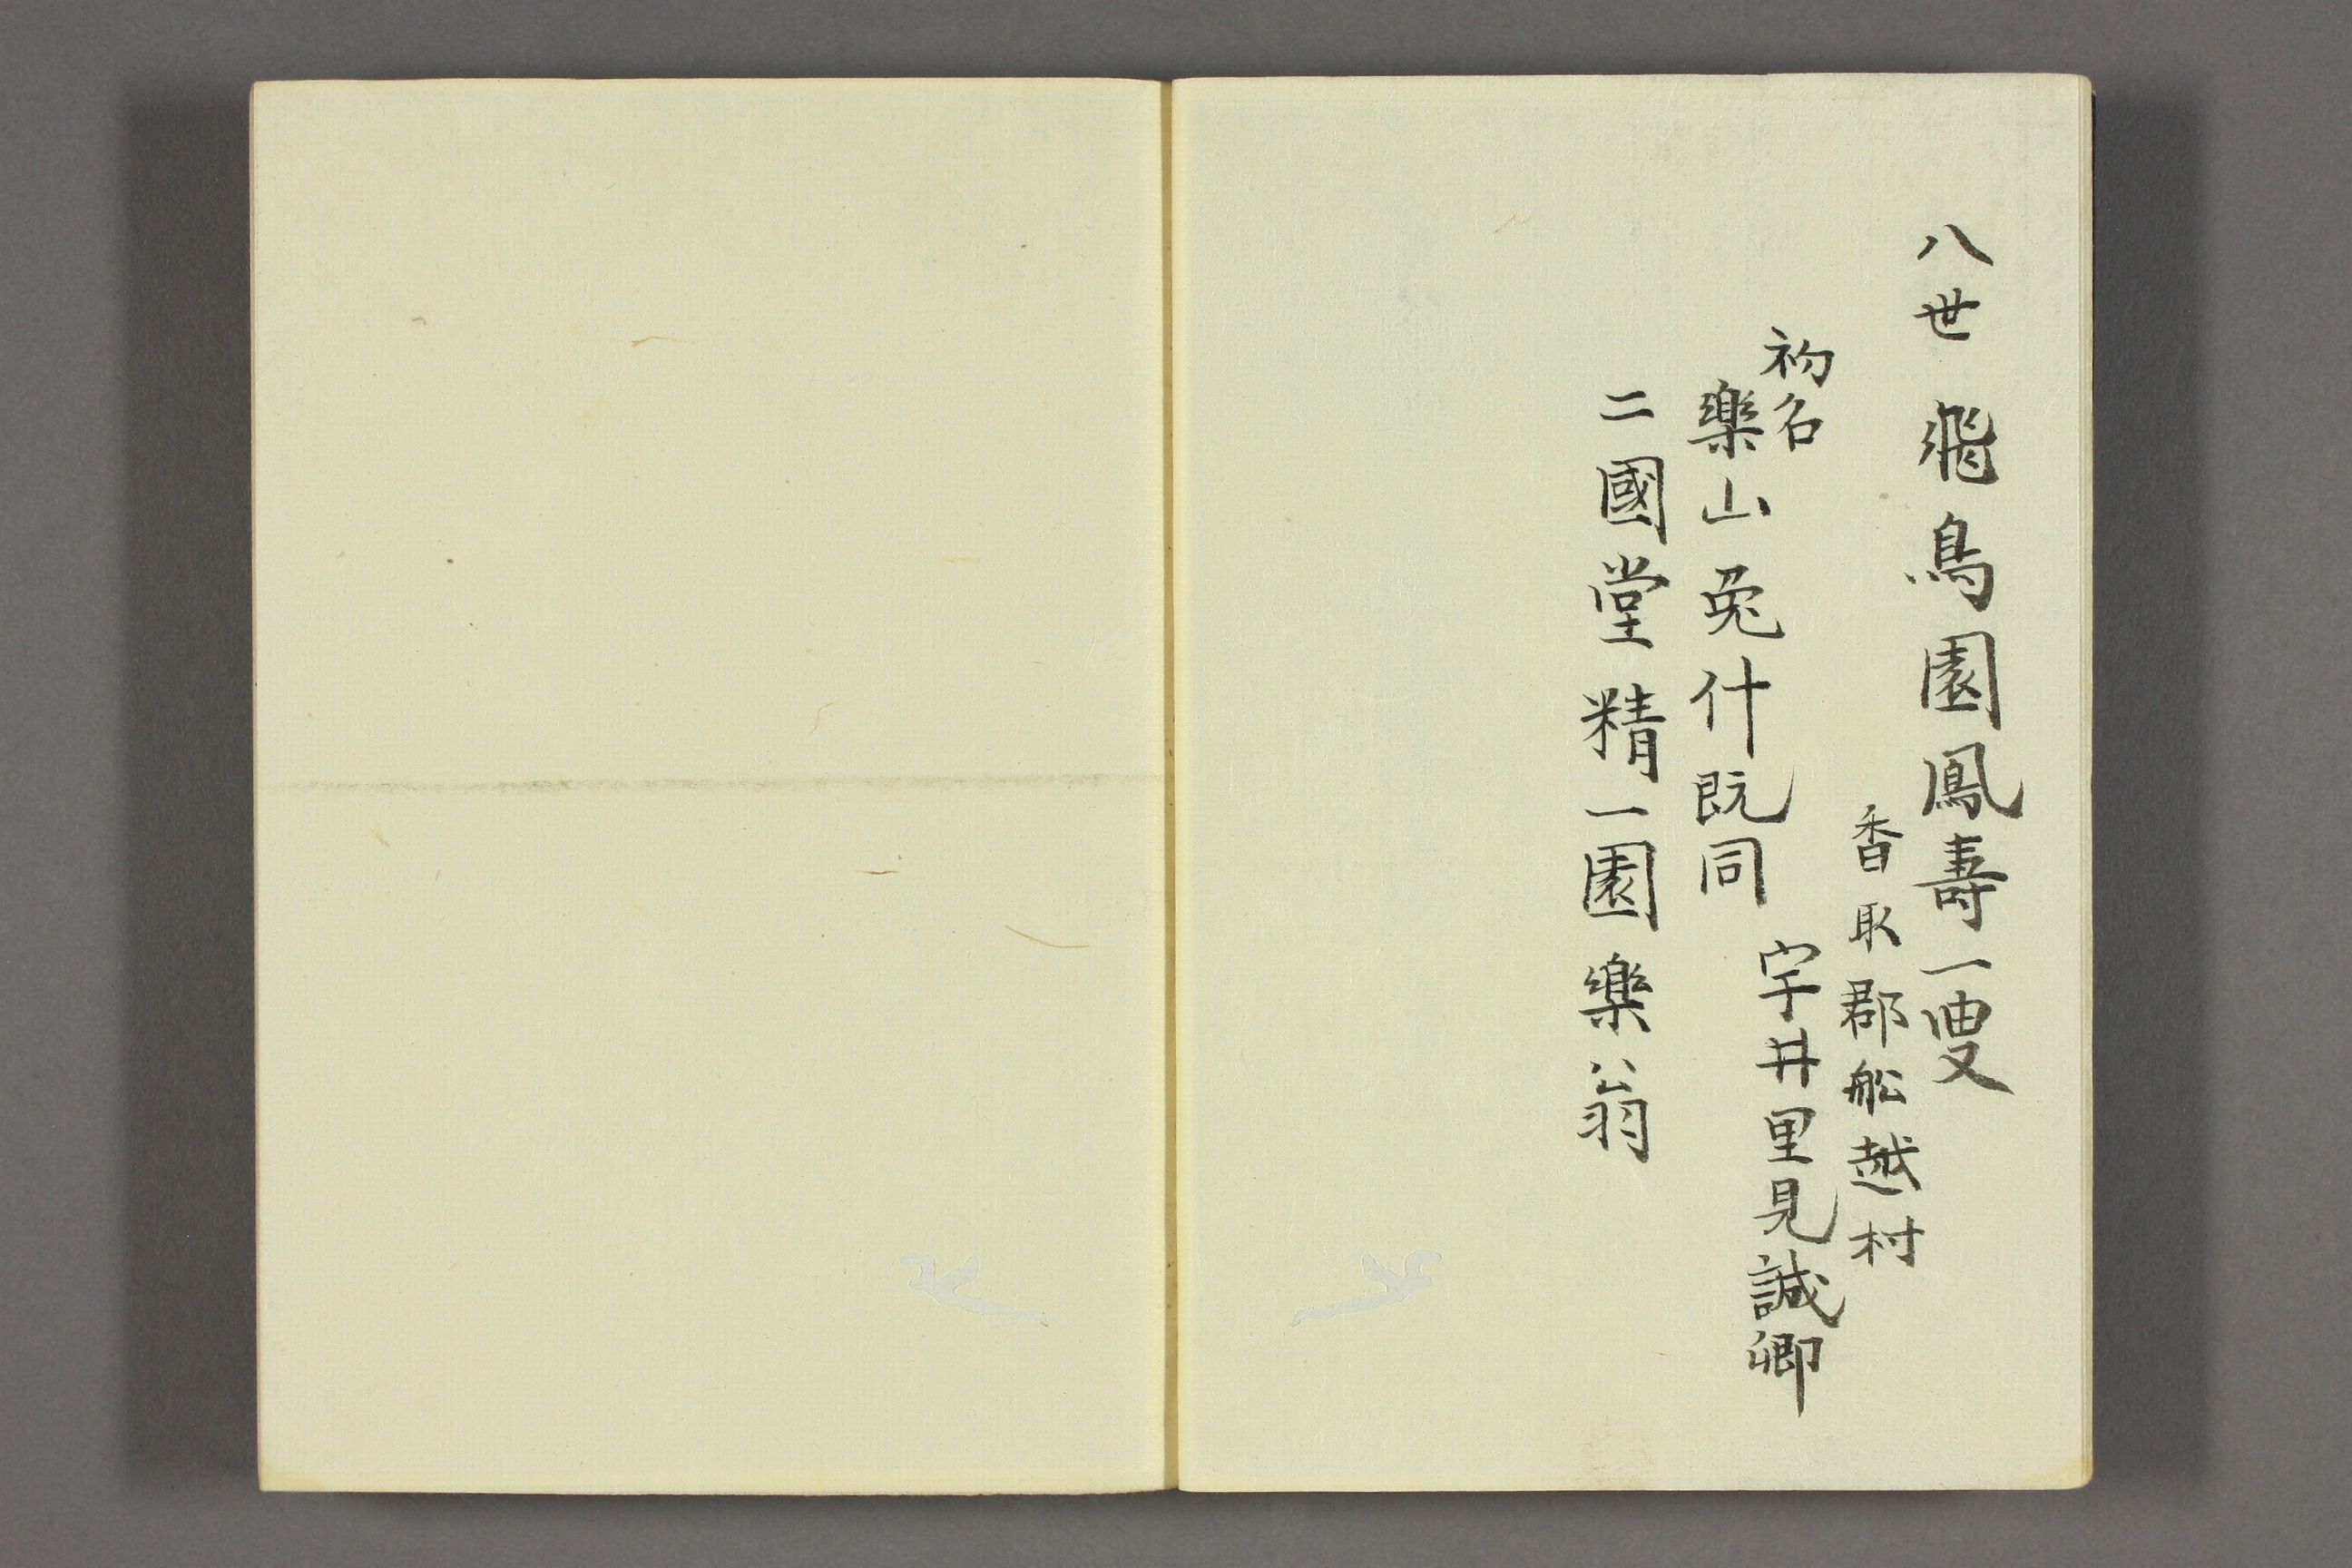 八世 飛鳥園鳳壽一叟
香取郡舩越村
宇井里見誠卿
初名
樂山兎什既同
二國堂精一園樂翁